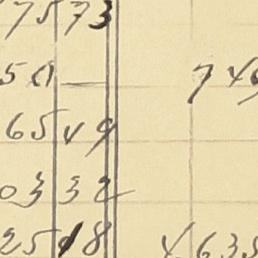 75 73
50 —
65 49
03 32
25 18 4638